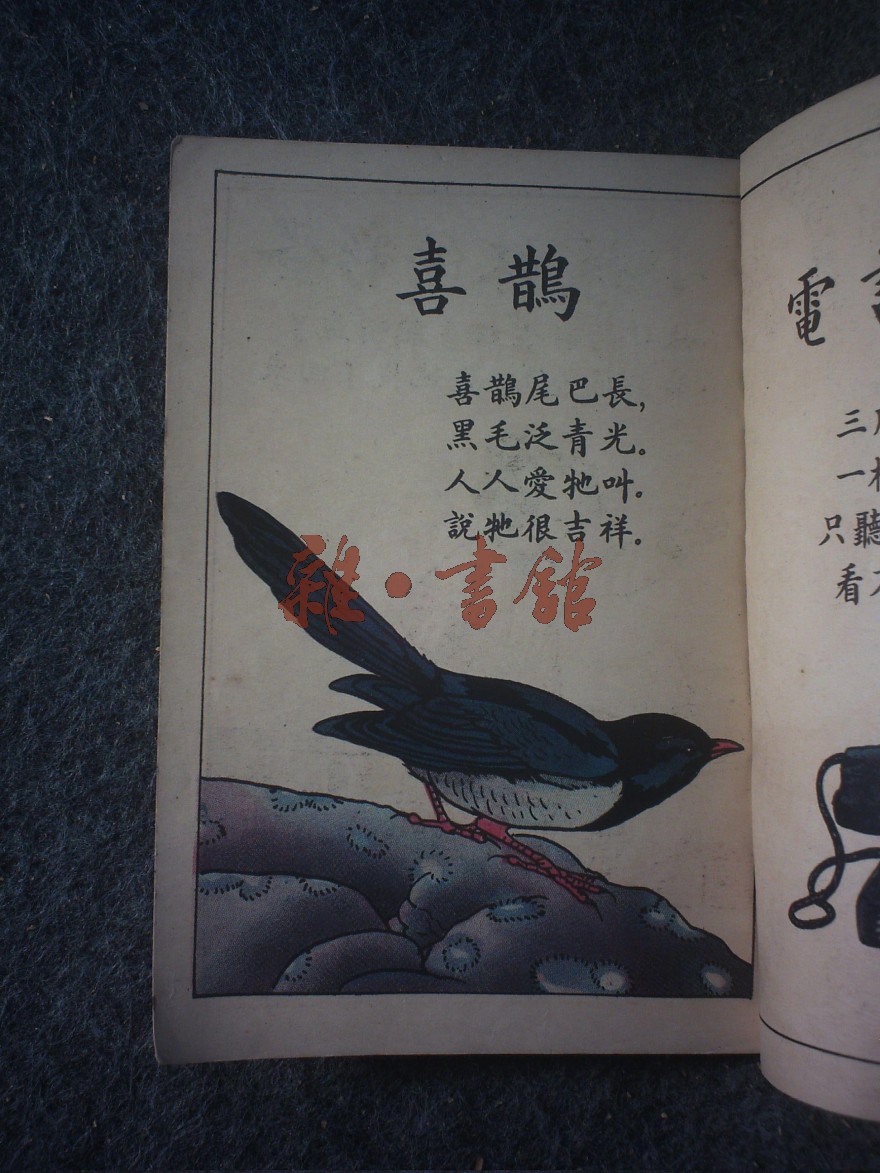 喜鵲
喜鵲尾巴長，
黑毛泛青光。
人人愛牠叫。
說牠很吉祥。
雜·書館
電
三
一
只聽
看